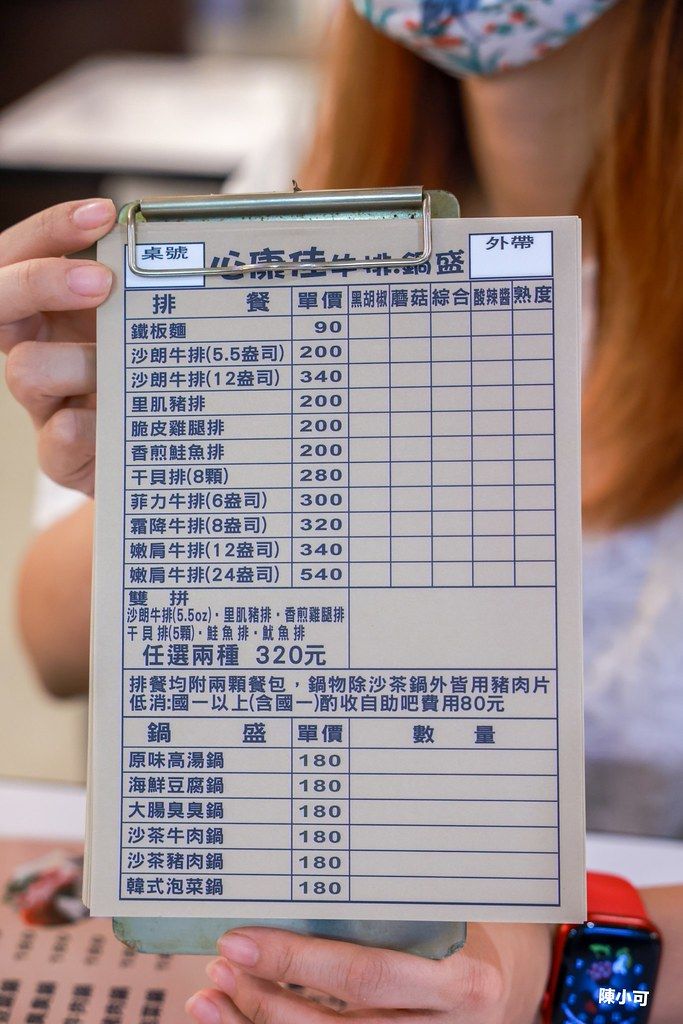 桌號 心康佳牛排.鍋盛 外帶
排 餐 單價 黑胡椒 蘑菇 綜合 酸辣醬 熟度
鐵板麵 90
沙朗牛排(5.5盎司) 200
沙朗牛排(12盎司) 340
里肌豬排 200
脆皮雞腿排 200
香煎鮭魚排 200
干貝排(8顆) 280
菲力牛排(6盎司) 300
霜降牛排(8盎司) 320
嫩肩牛排(12盎司) 340
嫩肩牛排(24盎司) 540
雙 拼
沙朗牛排(5.5oz)·里肌豬排·香煎雞腿排
干貝排(5顆)·鮭魚排·魷魚排
任選兩種 320元
排餐均附兩顆餐包，鍋物除沙茶鍋外皆用豬肉片
低消:國一以上(含國一)酌收自助吧費用80元
鍋 盛 單價 數 量
原味高湯鍋 180
海鮮豆腐鍋 180
大腸臭臭鍋 180
沙茶牛肉鍋 180
沙茶豬肉鍋 180
韓式泡菜鍋 180
陳小可